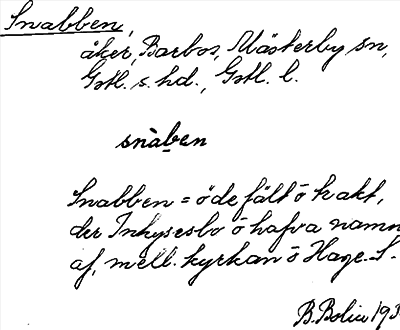 Snabben,
åker, Barbos, Mästerby sn,
Gotl. s. hd., Gotl. l.
snàben
Snabben = öde fält ö kakt,
der Inhysesbo ö hafva namn
af, mell. kyrkan ö Hage. S.
B. Bolin 193